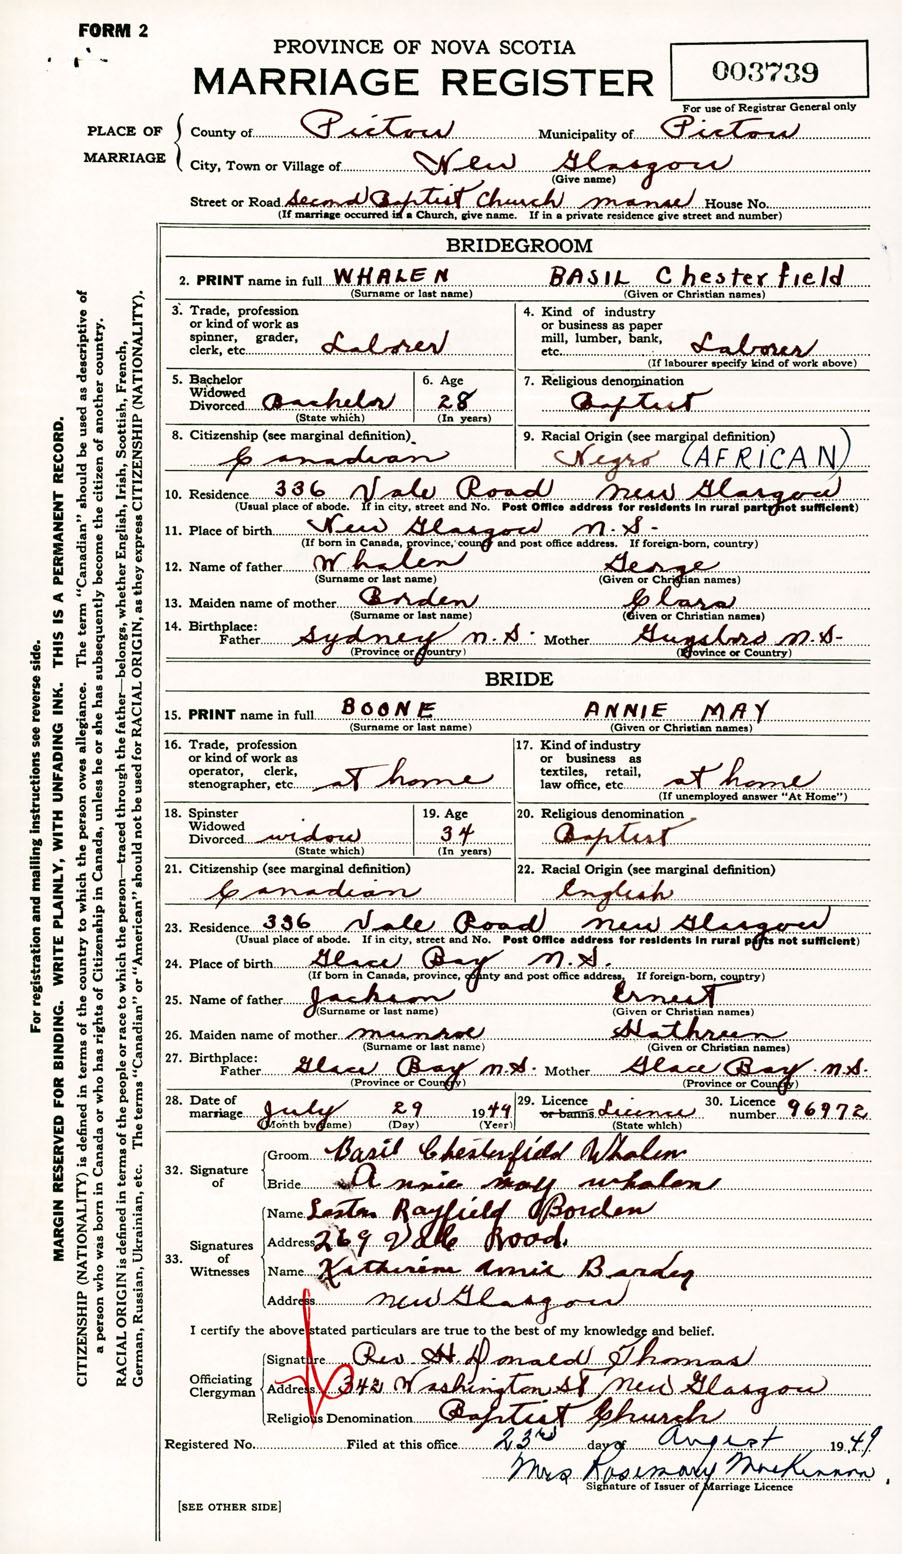 FORM 2
PROVINCE OF NOVA SCOTIA
MARRIAGE REGISTER
003739
For use of Registrar General only
PLACE OF MARRIAGE
County of Pictou Municipality of Pictou
City, Town or Village of New Glasgow
(Give name)
Street or Road Second Baptist Church manse House No.
(If marriage occurred in a Church, give name. If in a private residence give street and number)
BRIDEGROOM
2. PRINT name in full WHALEN BASIL Chesterfield
(Surname or last name) (Given or Christian names)
3. Trade, profession or kind of work as spinner, grader, clerk, etc. Laborer
4. Kind of industry or business as paper mill, lumber, bank, etc. Laborer
(If labourer specify kind of work above)
5. Bachelor Widowed Divorced Bachelor (State which)
6. Age 28 (In years)
7. Religious denomination Baptist
8. Citizenship (see marginal definition) Canadian
9. Racial Origin (see marginal definition) Negro (AFRICAN)
10. Residence 336 Vale Road New Glasgow
(Usual place of abode. If in city, street and No. Post Office address for residents in rural parts not sufficient)
11. Place of birth New Glasgow N.S.
(If born in Canada, province, county and post office address. If foreign-born, country)
12. Name of father Whalen George
(Surname or last name) (Given or Christian names)
13. Maiden name of mother Borden Clara
(Surname or last name) (Given or Christian names)
14. Birthplace: Father Sydney N.S. Mother Guysboro N.S.
(Province or Country) (Province or Country)
BRIDE
15. PRINT name in full BOONE ANNIE MAY
(Surname or last name) (Given or Christian names)
16. Trade, profession or kind of work as operator, clerk, stenographer, etc. at home
17. Kind of industry or business as textiles, retail, law office, etc. at home
(If unemployed answer "At Home")
18. Spinster Widowed Divorced widow (State which)
19. Age 34 (In years)
20. Religious denomination Baptist
21. Citizenship (see marginal definition) Canadian
22. Racial Origin (see marginal definition) English
23. Residence 336 Vale Road New Glasgow
(Usual place of abode. If in city, street and No. Post Office address for residents in rural parts not sufficient)
24. Place of birth Glace Bay N.S.
(If born in Canada, province, county and post office address. If foreign-born, country)
25. Name of father Jackson Ernest
(Surname or last name) (Given or Christian names)
26. Maiden name of mother Munroe Kathreen
(Surname or last name) (Given or Christian names)
27. Birthplace: Father Glace Bay N.S. Mother Glace Bay N.S.
(Province or County) (Province or County)
28. Date of marriage July 29 1949
(Month by name) (Day) (Year)
29. Licence or banns Licence (State which)
30. Licence number 96972
32. Signature of
Groom Basil Chesterfield Whalen
Bride Annie may whalen
33. Signatures of Witnesses
Name Rayfield Borden
Address 269 Vale Road.
Name Annie
Address New Glasgow
I certify the above stated particulars are true to the best of my knowledge and belief.
Officiating Clergyman
Signature Rev H. Donald Thomas
Address 342 Washington St New Glasgow
Religious Denomination Baptist Church
Registered No. Filed at this office 23rd day of August 1949
Mrs Rosemary MacKinnon
Signature of Issuer of Marriage Licence
[SEE OTHER SIDE]
For registration and mailing instructions see reverse side.
MARGIN RESERVED FOR BINDING. WRITE PLAINLY, WITH UNFADING INK. THIS IS A PERMANENT RECORD.
CITIZENSHIP (NATIONALITY) is defined in terms of the country to which the person owes allegiance. The term "Canadian" should be used as descriptive of
a person who was born in Canada or who has rights of Citizenship in Canada, unless he or she has subsequently become the citizen of another country.
RACIAL ORIGIN is defined in terms of the people or race to which the person—traced through the father—belongs, whether English, Irish, Scottish, French,
German, Russian, Ukrainian, etc. The terms "Canadian" or "American" should not be used for RACIAL ORIGIN, as they express CITIZENSHIP (NATIONALITY).